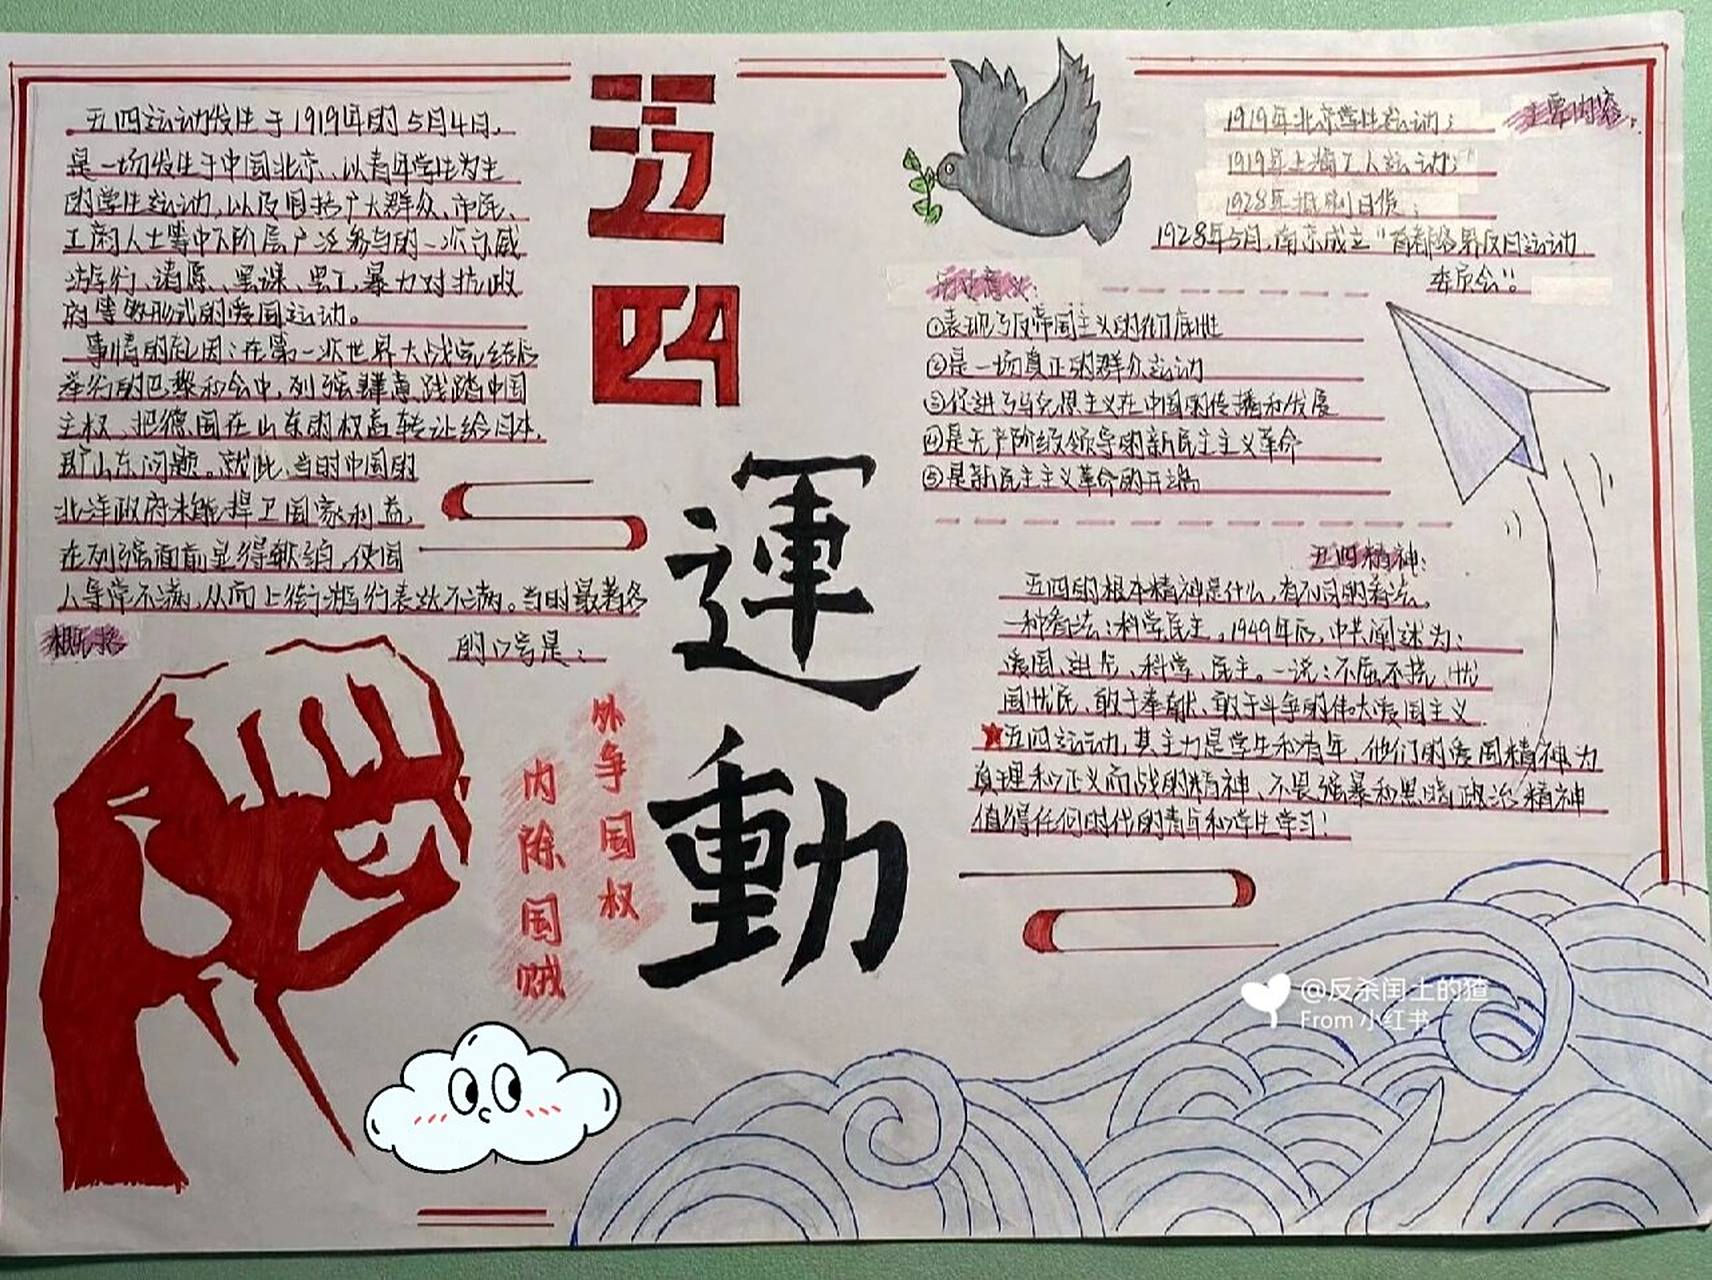 五四
運動
五四运动发生于1919年的5月4日,
是一场发生于中国北京、以青年学生为主
的学生运动,以及包括广大群众、市民、
工商人士等中下阶层广泛参与的一次示威
游行、请愿、罢课、罢工、暴力对抗政
府等多形式的爱国运动。
事情的起因:在第一次世界大战完结后
举行的巴黎和会中,列强肆意践踏中国
主权、把德国在山东的权益转让给日本,
即山东问题。就此,当时中国的
北洋政府未能捍卫国家利益,
在列强面前显得软弱,使国
人异常不满,从而上街游行表达不满。当时最著名
的口号是:
外争国权
内除国贼
主要内容:
1919年北京学生运动;
1919年上海工人运动;
1928年抵制日货;
1928年5月,南京成立"首都各界反日运动
委员会"。
历史意义:
①表现了反帝国主义的彻底性
②是一场真正的群众运动
③促进了马克思主义在中国的传播和发展
④是无产阶级领导的新民主主义革命
⑤是新民主主义革命的开端
五四精神:
五四的根本精神是什么,有不同的看法。
一种看法:科学民主。1949年后,中共阐述为:
爱国、进步、科学、民主。一说:不屈不挠、忧
国忧民、敢于奉献、敢于斗争的伟大爱国主义
五四运动,其主力是学生和青年,他们的爱国精神为
真理和正义而战的精神、不畏强暴和黑暗政治精神
值得任何时代的青年和学生学习!
@反杀闰土的猹
From 小红书